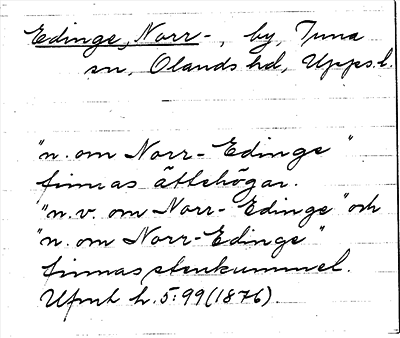 Edinge, Norr-, by, Tuna
sn, Olands hd, Upps.l.
"n. om Norr-Edinge"
finnas ättehögar.
"n.v. om Norr-Edinge" och
"n. om Norr-Edinge"
finnas stenkummel.
Ufmt h. 5:99 (1876).